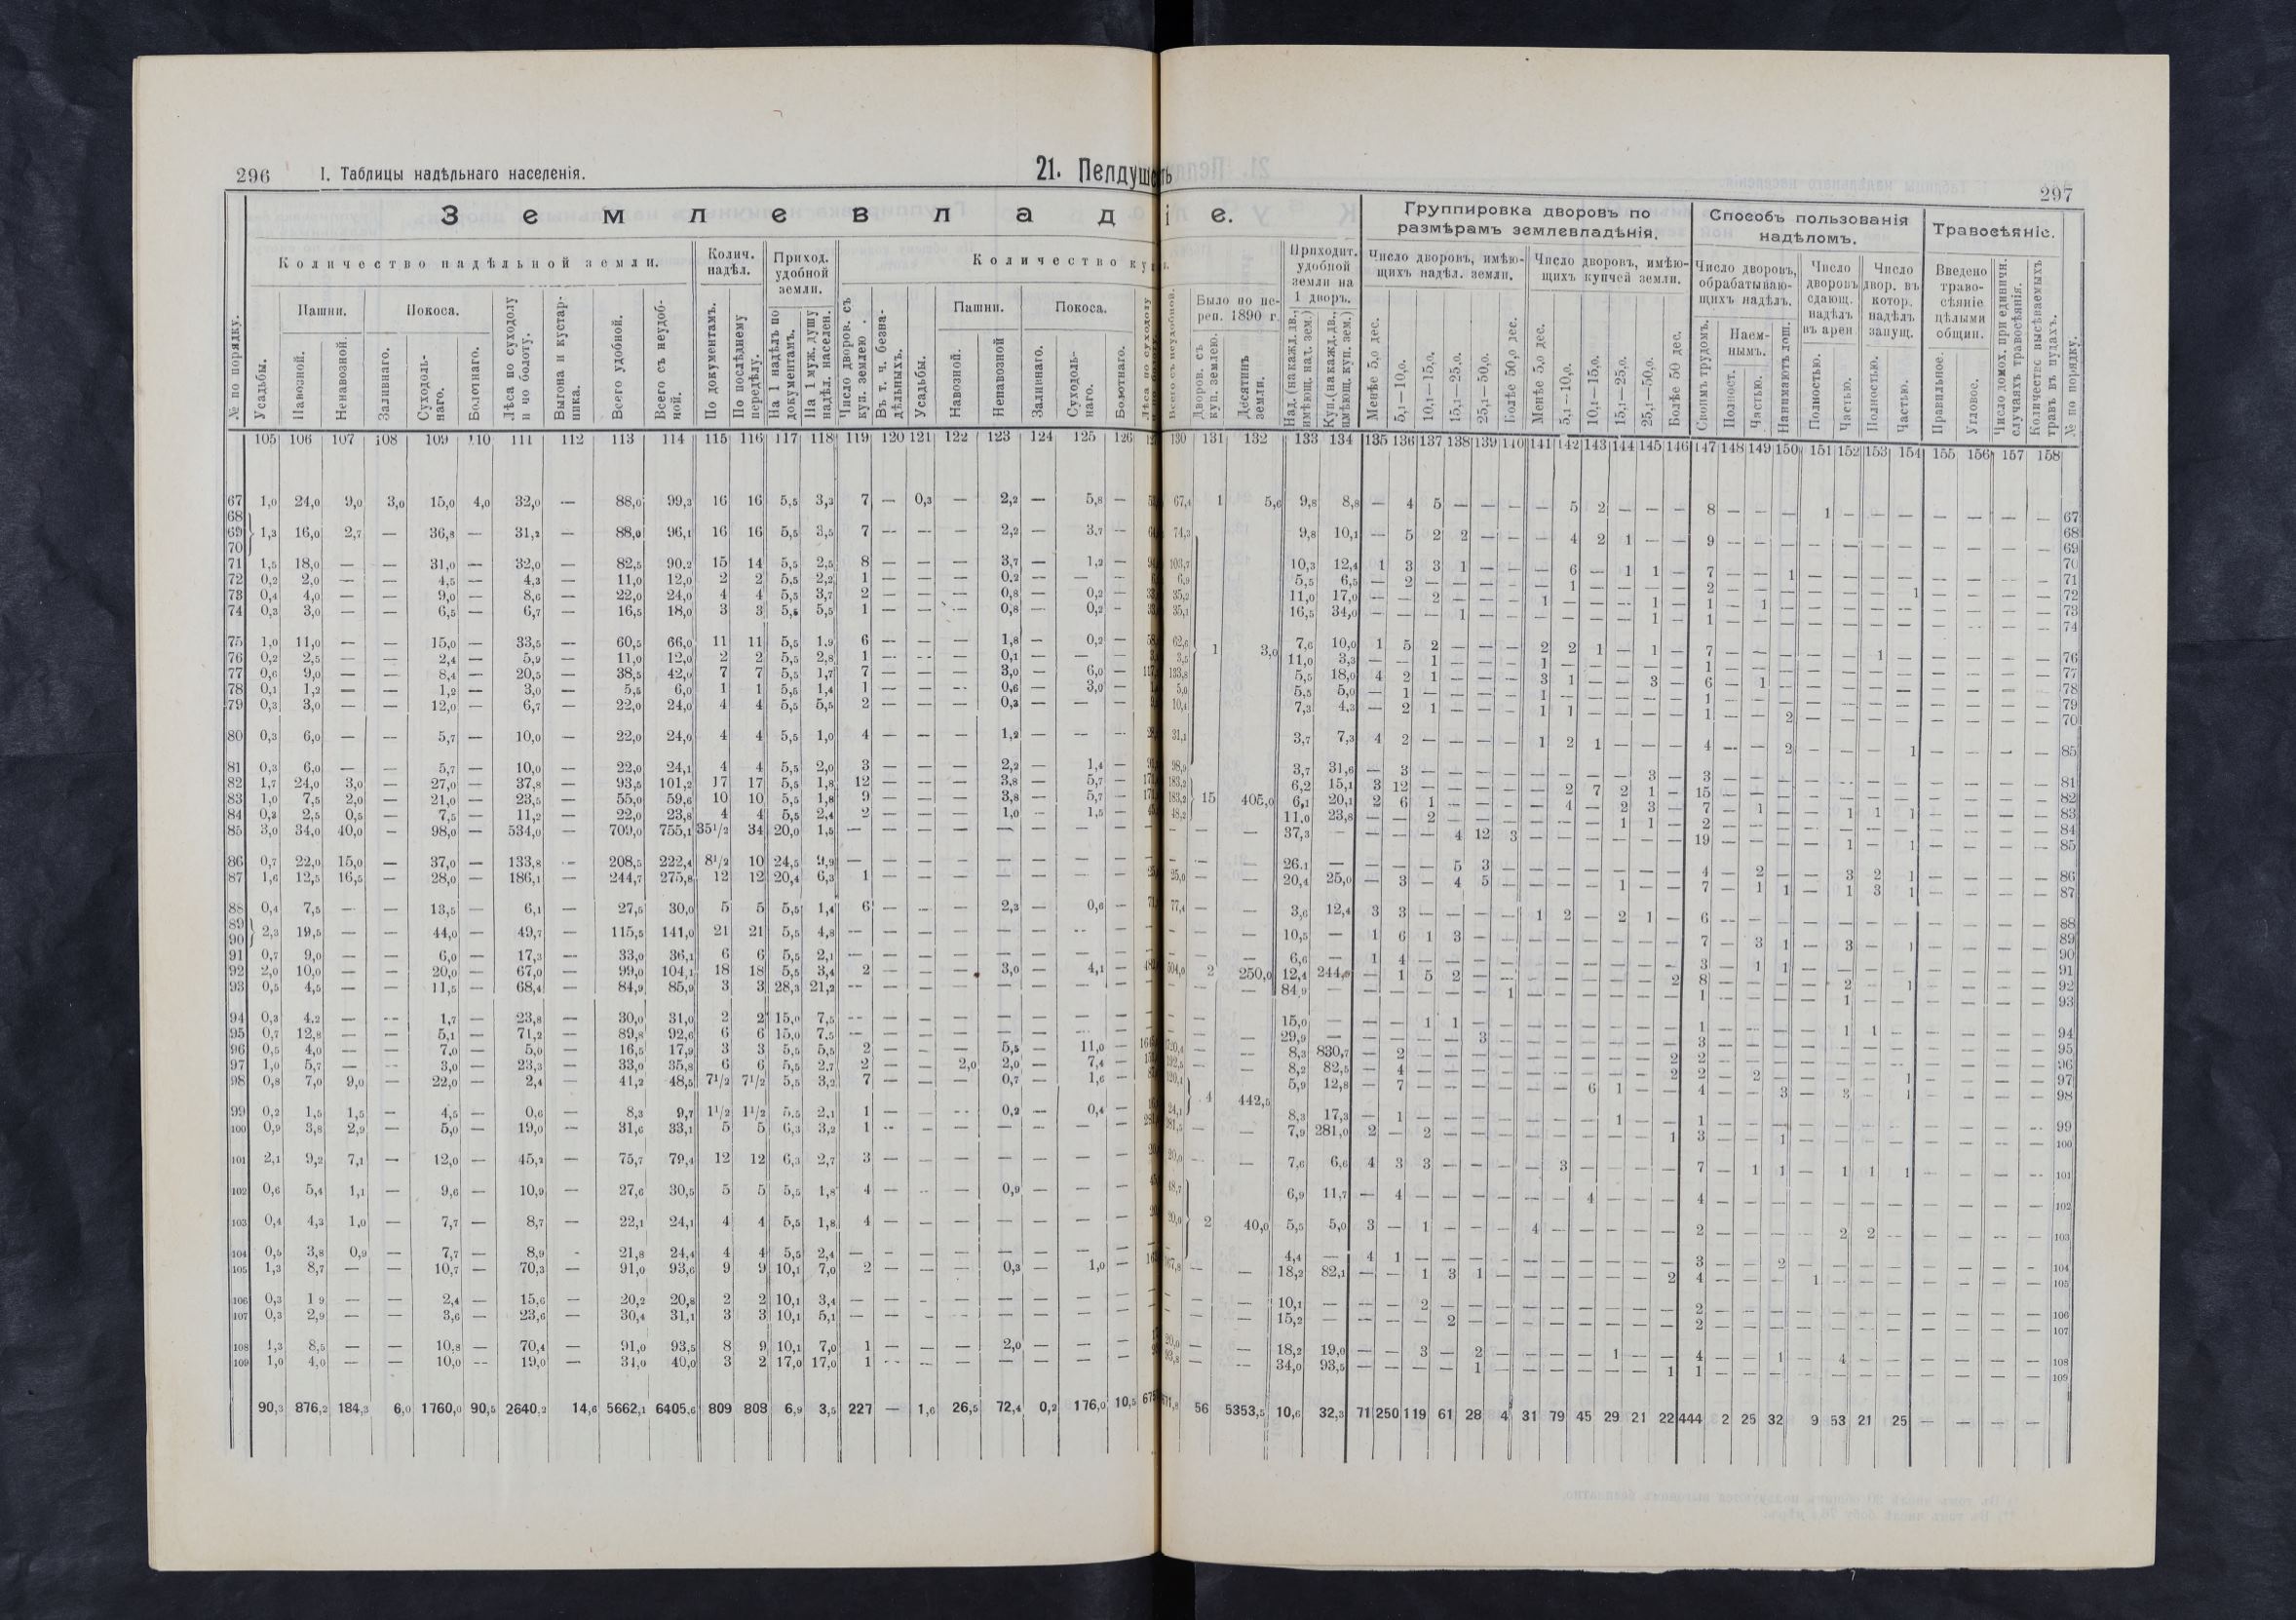 296 I. Таблицы надѣльнаго населенія. 21. Пелдуш
297
З е м л е в л а д і е.
Группировка дворовъ по размѣрамъ землевладѣнія.
Способъ пользованія надѣломъ.
Травосѣяніе.
Количество надѣльной земли.
Колич. надѣл.
Приход. удобной земли.
Количество ку
Было по пе- реп. 1890 г.
Приходит. удобной земли на 1 дворъ.
Число дворовъ, имѣю- щихъ надѣл. земли.
Число дворовъ, имѣю- щихъ купчей земли.
Число дворовъ, обрабатываю- щихъ надѣлъ.
Число дворовъ сдающ. надѣлъ въ арен
Число двор. въ котор. надѣлъ запущ.
Введено траво- сѣяніе цѣлыми общин.
Пашни. Покоса. Пашни. Покоса. Наем- нымъ.
№ по порядку. Усадьбы. Навозной. Ненавозной. Заливнаго. Суходоль- наго. Болотнаго. Лѣса по суходолу и по болоту. Выгона и кустар- ника. Всего удобной. Всего съ неудоб- ной. По документамъ. По послѣднему передѣлу. На 1 надѣлъ по документамъ. На 1 муж. душу надѣл. населен. Число дворов. съ куп. землею. Въ т. ч. безна- дѣльныхъ. Усадьбы. Навозной. Ненавозной Заливнаго. Суходоль- наго. Болотнаго.
Всего съ неудобной. Дворов. съ куп. землею. Десятинъ земли. Над. (на кажд. дв., имѣющ. над. зем.) Куп. (на кажд. дв., имѣющ. куп. зем.) Менѣе 5,0 дес. 5,1—10,0. 10,1—15,0. 15,1—25,0. 25,1—50,0. Болѣе 50,0 дес. Менѣе 5,0 дес. 5,1—10,0. 10,1—15,0. 15,1—25,0. 25,1—50,0. Болѣе 50 дес. Своимъ трудомъ. Полност. Частью. Нанимаютъ лош. Полностью. Частью. Полностью. Частью. Правильное. Угловое. Число домох. при единичн. случаяхъ травосѣянія. Количество высѣваемыхъ травъ въ пудахъ. № по порядку.
105 106 107 108 109 110 111 112 113 114 115 116 117 118 119 120 121 122 123 124 125 126
130 131 132 133 134 135 136 137 138 139 140 141 142 143 144 145 146 147 148 149 150 151 152 153 154 155 156 157 158
67 1,0 24,0 9,0 3,0 15,0 4,0 32,0 — 88,0 99,3 16 16 5,5 3,3 7 — 0,3 — 2,2 — 5,8 — 67,4 1 5,6 9,8 8,8 — 4 5 — — — — 5 2 — — — 8 — — — 1 — — — — — — — 67
68
69 1,3 16,0 2,7 — 36,8 — 31,2 — 88,0 96,1 16 16 5,5 3,5 7 — — — 2,2 — 3,7 — 74,3 9,8 10,1 — 5 2 2 — — — 4 2 1 — — 9 — — — — — — — — — — — 68
70
69
71 1,5 18,0 — — 31,0 — 32,0 — 82,5 90,2 15 14 5,5 2,5 8 — — — 3,7 — 1,2 — 103,7 10,3 12,4 1 3 3 1 — — — 6 — 1 1 — 7 — — 1 — — — — — — — — 70
72 0,2 2,0 — — 4,5 — 4,3 — 11,0 12,0 2 2 5,5 2,2 1 — — — 0,2 — — — 6,9 5,5 6,5 — 2 — — — — — 1 — — — — 2 — — — — — — 1 — — — — 71
73 0,4 4,0 — — 9,0 — 8,6 — 22,0 24,0 4 4 5,5 3,7 2 — — — 0,8 — 0,2 — 35,2 11,0 17,0 — — 2 — — — 1 — — — 1 — 1 — 1 — — — — — — — — — 72
74 0,3 3,0 — — 6,5 — 6,7 — 16,5 18,0 3 3 5,5 5,5 1 — — — 0,8 — 0,2 — 35,1 16,5 34,0 — — — 1 — — — — — — 1 — 1 — — — — — — — — — — — 73
74
75 1,0 11,0 — — 15,0 — 33,5 — 60,5 66,0 11 11 5,5 1,9 6 — — — 1,8 — 0,2 — 62,6 1 3,0 7,6 10,0 1 5 2 — — — 2 2 1 — 1 — 7 — — — — — 1 — — — — — 76
76 0,2 2,5 — — 2,4 — 5,9 — 11,0 12,0 2 2 5,5 2,8 1 — — — 0,1 — — — 3,5 11,0 3,3 — — 1 — — — 1 — — — — — 1 — — — — — — — — — — — 77
77 0,6 9,0 — — 8,4 — 20,5 — 38,5 42,0 7 7 5,5 1,7 7 — — — 3,0 — 6,0 — 133,8 5,5 18,0 4 2 1 — — — 3 1 — — 3 — 6 — 1 — — — — — — — — — 78
78 0,1 1,2 — — 1,2 — 3,0 — 5,5 6,0 1 1 5,5 1,4 1 — — — 0,6 — 3,0 — 5,0 5,5 5,0 — 1 — — — — 1 — — — — — 1 — — — — — — — — — — — 79
79 0,3 3,0 — — 12,0 — 6,7 — 22,0 24,0 4 4 5,5 5,5 2 — — — 0,3 — — — 10,4 7,3 4,3 — 2 1 — — — 1 1 — — — — 1 — — 2 — — — — — — — — 70
80 0,3 6,0 — — 5,7 — 10,0 — 22,0 24,0 4 4 5,5 1,0 4 — — — 1,2 — — — 31,1 3,7 7,3 4 2 — — — — 1 2 1 — — — 4 — — 2 — — — 1 — — — — 85
81 0,3 6,0 — — 5,7 — 10,0 — 22,0 24,1 4 4 5,5 2,0 3 — — — 2,2 — 1,4 — 98,9 3,7 31,6 — 3 — — — — — — — — 3 — 3 — — — — — — — — — — — 81
82 1,7 24,0 3,0 — 27,0 — 37,8 — 93,5 101,2 17 17 5,5 1,8 12 — — — 3,8 — 5,7 — 183,2 15 405,0 6,2 15,1 3 12 — — — — — 2 7 2 1 — 15 — — — — — — — — — — — 82
83 1,0 7,5 2,0 — 21,0 — 23,5 — 55,0 59,6 10 10 5,5 1,8 9 — — — 3,8 — 5,7 — 183,2 6,1 20,1 2 6 1 — — — — 4 — 2 3 — 7 — 1 — — 1 1 1 — — — — 83
84 0,3 2,5 0,5 — 7,5 — 11,2 — 22,0 23,8 4 4 5,5 2,4 2 — — — 1,0 — 1,5 — 48,2 11,0 23,8 — — 2 — — — — — — 1 1 — 2 — — — — — — — — — — — 84
85 3,0 34,0 40,0 — 98,0 — 534,0 — 709,0 755,1 35¹/₂ 34 20,0 1,5 — — — — — — — — — — — 37,3 — — — — 4 12 3 — — — — — — 19 — — — — 1 — 1 — — — — 85
86 0,7 22,0 15,0 — 37,0 — 133,8 — 208,5 222,4 8¹/₂ 10 24,5 9,9 — — — — — — — — — — — 26,1 — — — — 5 3 — — — — — — — 4 — 2 — — 3 2 1 — — — — 86
87 1,6 12,5 16,5 — 28,0 — 186,1 — 244,7 275,8 12 12 20,4 6,3 1 — — — — — — — 25,0 — — 20,4 25,0 — 3 — 4 5 — — — — 1 — — 7 — 1 1 — 1 3 1 — — — — 87
88 0,4 7,5 — — 13,5 — 6,1 — 27,5 30,0 5 5 5,5 1,4 6 — — — 2,3 — 0,6 — 77,4 — — 3,6 12,4 3 3 — — — — 1 2 — 2 1 — 6 — — — — — — — — — — — 88
89
90 2,3 19,5 — — 44,0 — 49,7 — 115,5 141,0 21 21 5,5 4,8 — — — — — — — — — — — 10,5 — 1 6 1 3 — — — — — — — — 7 — 3 1 — 3 — 1 — — — — 89
90
91 0,7 9,0 — — 6,0 — 17,3 — 33,0 36,1 6 6 5,5 2,1 — — — — — — — — — — — 6,6 — 1 4 — — — — — — — — — — 3 — 1 1 — — — — — — — — 91
92 2,0 10,0 — — 20,0 — 67,0 — 99,0 104,1 18 18 5,5 3,4 2 — — — 3,0 — 4,1 — 504,0 2 250,0 12,4 244,0 — 1 5 2 — — — — — — — 2 8 — — — — 2 — 1 — — — — 92
93 0,5 4,5 — — 11,5 — 68,4 — 84,9 85,9 3 3 28,3 21,2 — — — — — — — — — — — 84,9 — — — — — — 1 — — — — — — 1 — — — — 1 — — — — — — 93
94 0,3 4,2 — — 1,7 — 23,8 — 30,0 31,0 2 2 15,0 7,5 — — — — — — — — — — — 15,0 — — — 1 1 — — — — — — — — 1 — — — — 1 1 — — — — — 94
95 0,7 12,8 — — 5,1 — 71,2 — 89,8 92,6 6 6 15,0 7,5 — — — — — — — — — — — 29,9 — — — — — 3 — — — — — — — 3 — — — — — — — — — — — 95
96 0,5 4,0 — — 7,0 — 5,0 — 16,5 17,9 3 3 5,5 5,5 2 — — — 5,5 — 11,0 — — — 8,3 830,7 — 2 — — — — — — — — — 2 2 — — — — — — — — — — — 96
97 1,0 5,7 — — 3,0 — 23,3 — 33,0 35,8 6 6 5,5 2,7 2 — — 2,0 2,0 — 7,4 — — — 8,2 82,5 — 4 — — — — — — — — — 2 2 — 2 — — — — 1 — — — — 97
98 0,8 7,0 9,0 — 22,0 — 2,4 — 41,2 48,5 7¹/₂ 7¹/₂ 5,5 3,2 7 — — — 0,7 — 1,6 — 4 442,5 5,9 12,8 — 7 — — — — — — 6 1 — — 4 — — 3 — 3 — 1 — — — — 98
99 0,2 1,5 1,5 — 4,5 — 0,6 — 8,3 9,7 1¹/₂ 1¹/₂ 5,5 2,1 1 — — — 0,2 — 0,4 — 24,1 8,3 17,3 — 1 — — — — — — — 1 — — 1 — — — — — — — — — — — 99
100 0,9 3,8 2,9 — 5,0 — 19,0 — 31,6 33,1 5 5 6,3 3,2 1 — — — — — — — 281,5 — — 7,9 281,0 2 — 2 — — — — — — — — 1 3 — — 1 — — — — — — — — 100
101 2,1 9,2 7,1 — 12,0 — 45,2 — 75,7 79,4 12 12 6,3 2,7 3 — — — — — — — 20,0 — — 7,6 6,6 4 3 3 — — — — 3 — — — — 7 — 1 1 — 1 1 1 — — — — 101
102 0,6 5,4 1,1 — 9,6 — 10,9 — 27,6 30,5 5 5 5,5 1,8 4 — — — 0,9 — — — 48,7 6,9 11,7 — 4 — — — — — — 4 — — — 4 — — — — — — — — — — — 102
103 0,4 4,3 1,0 — 7,7 — 8,7 — 22,1 24,1 4 4 5,5 1,8 4 — — — — — — — 20,0 2 40,0 5,5 5,0 3 — 1 — — — 4 — — — — — 2 — — — — 2 2 — — — — — 103
104 0,5 3,8 0,9 — 7,7 — 8,9 - 21,8 24,4 4 4 5,5 2,4 — — — — — — — — — 4,4 — 4 1 — — — — — — — — — — 3 — — 2 — — — — — — — — 104
105 1,3 8,7 — — 10,7 — 70,3 — 91,0 93,6 9 9 10,1 7,0 2 — — — 0,3 — 1,0 — — — 18,2 82,1 — — 1 3 1 — — — — — — 2 4 — — — 1 — — — — — — — 105
106 0,3 1 9 — — 2,4 — 15,6 — 20,2 20,8 2 2 10,1 3,4 — — — — — — — — — — — 10,1 — — — 2 — — — — — — — — — 2 — — — — — — — — — — — 106
107 0,3 2,9 — — 3,6 — 23,6 — 30,4 31,1 3 3 10,1 5,1 — — — — — — — — — — — 15,2 — — — — 2 — — — — — — — — 2 — — — — — — — — — — — 107
108 1,3 8,5 — — 10,8 — 70,4 — 91,0 93,5 8 9 10,1 7,0 1 — — — 2,0 — — — 20,0 — — 18,2 19,0 — — 3 — 2 — — — — 1 — — 4 — — 1 — 4 — — — — — — 108
109 1,0 4,0 — — 10,0 — 19,0 — 34,0 40,0 3 2 17,0 17,0 1 — — — — — — — 93,8 — — 34,0 93,5 — — — — 1 — — — — — — 1 1 — — — — — — — — — — — 109
90,3 876,2 184,3 6,0 1760,0 90,5 2640,2 14,6 5662,1 6405,6 809 808 6,9 3,5 227 — 1,6 26,5 72,4 0,2 176,0 10,5 56 5353,5 10,6 32,3 71 250 119 61 28 4 31 79 45 29 21 22 444 2 25 32 9 53 21 25 — — — —